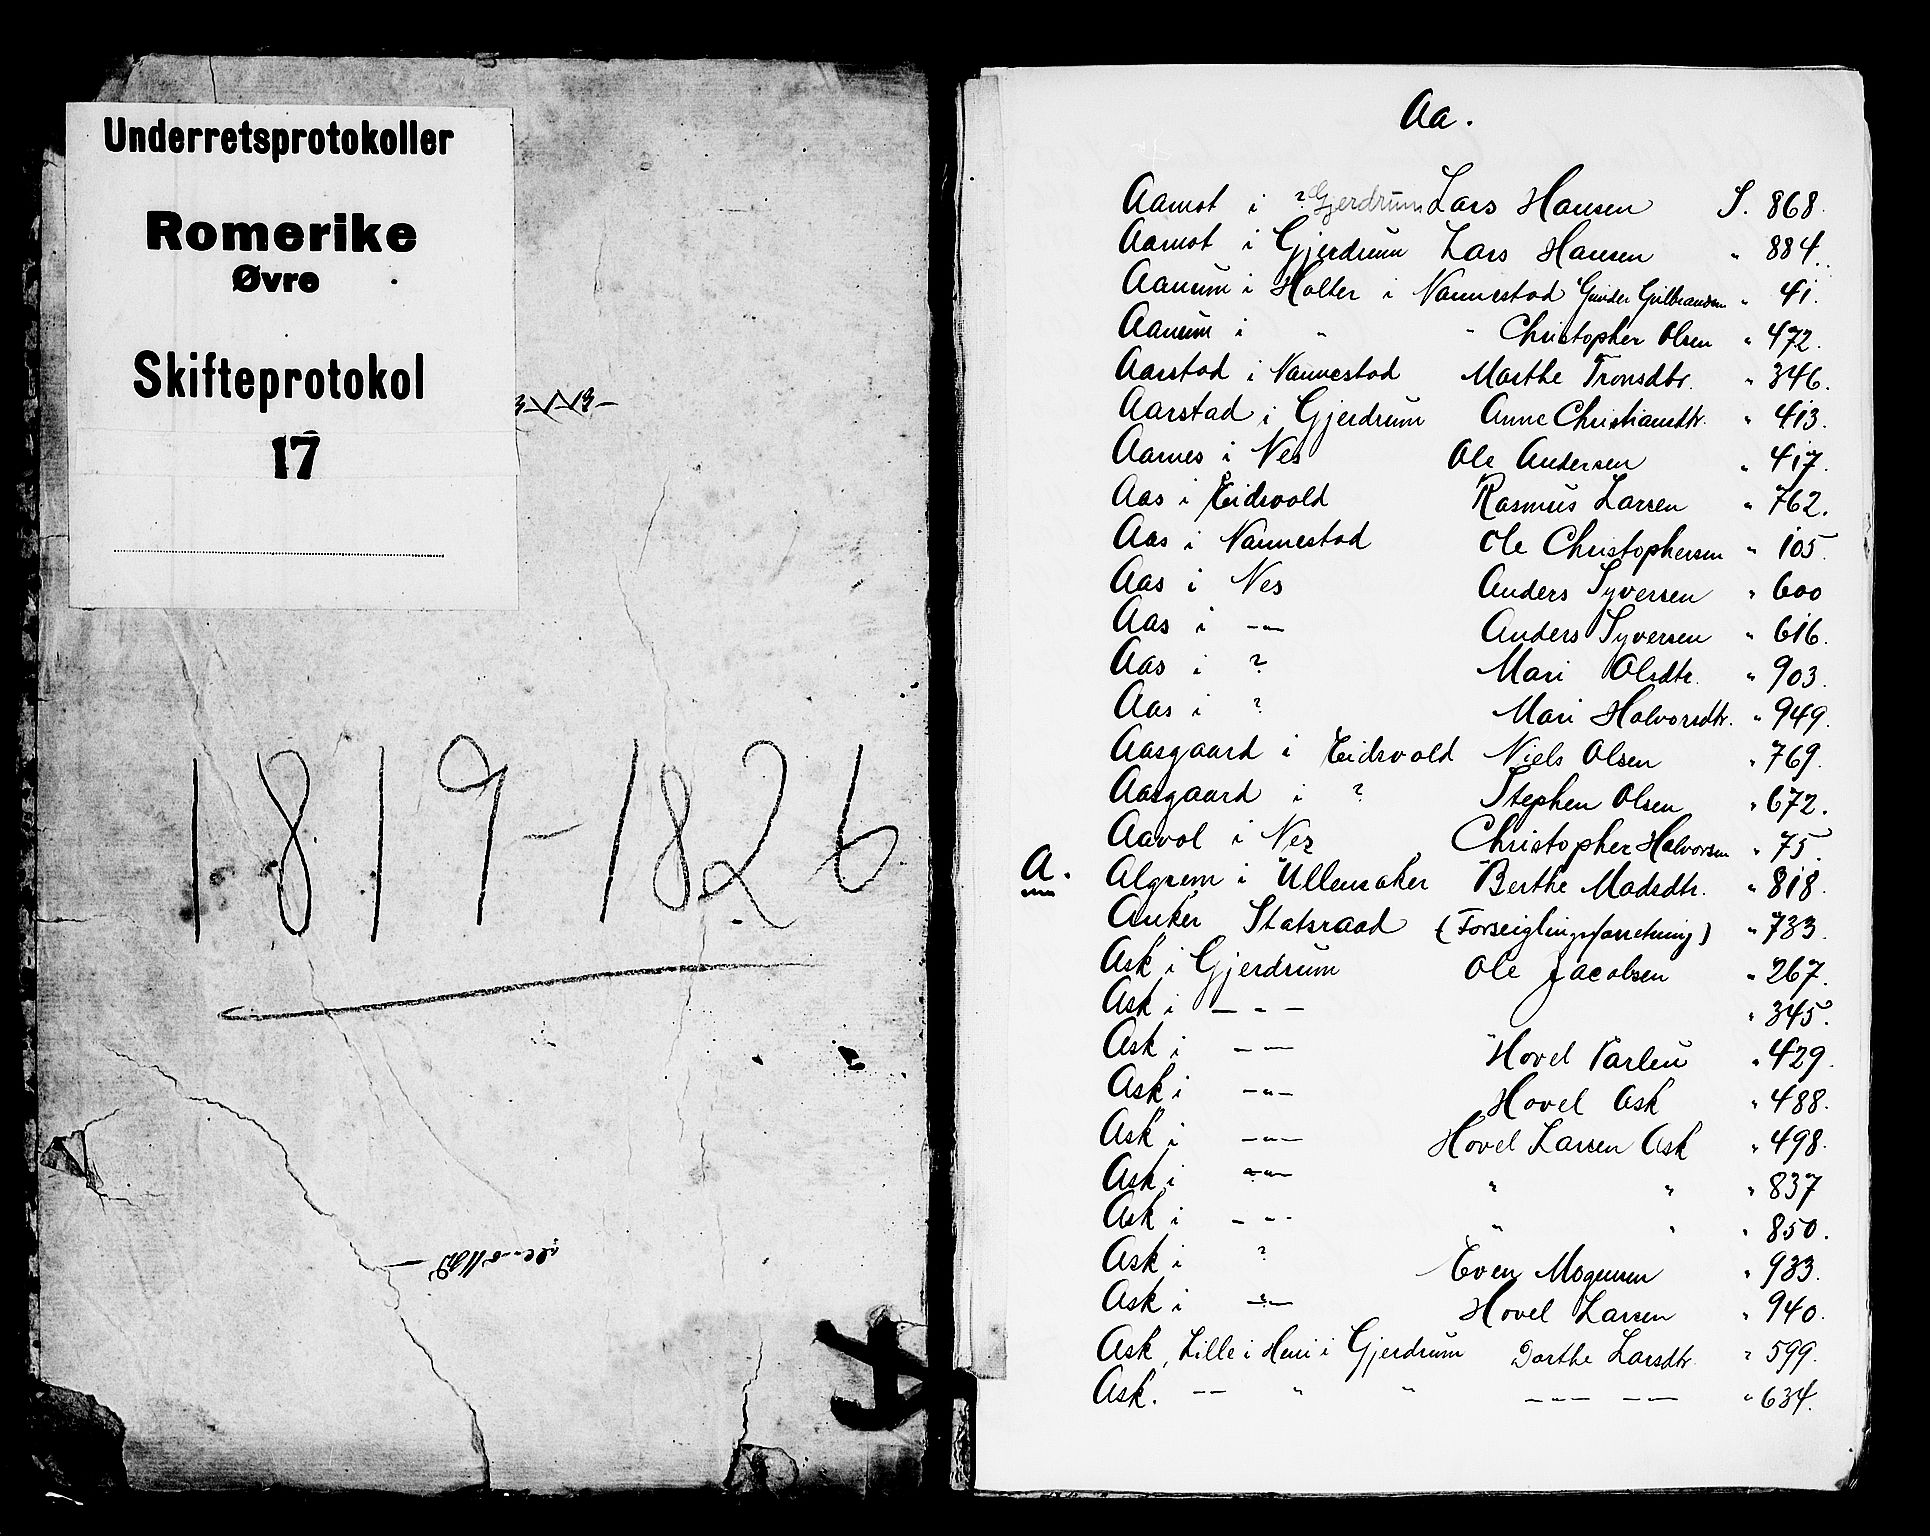 Underretsprotokoller
Romerike
Øvre
Skifteprotokol
17
1819-1826
Aa.
Aamot i ? Gjerdrum Lars Hansen S. 868.
Aamot i Gjerdrum Lars Hansen " 884.
Aanum i Holter i Nannestad Gunder Gulbrandsen " 41.
Aanum i " " Christopher Olsen " 472.
Aarstad i Nannestad Marthe Tronsdtr. " 346.
Aarstad i Gjerdrum Anne Christiansdtr. " 413.
Aarnes i Nes Ole Andersen " 417.
Aas i Eidsvold Rasmus Larsen " 762.
Aas i Nannestad Ole Christophersen " 105.
Aas i Nes Anders Syversen " 600
Aas i -"- Anders Syversen " 616.
Aas i ? Mari Olsdtr. " 903.
Aas i ? Mari Halvorsdtr. " 949.
Aasgaard i Eidsvold Niels Olsen " 769.
Aasgaard i ? Stephen Olsen " 672.
Aavol i Nes Christopher Halvorsen " 75.
A. Algrem i Ullensaker Berthe Madsdtr. " 818.
Anker Statsraad (Forseiglingsforretning) " 733.
Ask i Gjerdrum Ole Jacobsen " 267.
Ask i -"- " 345.
Ask i -"- Hovel Farlen " 429.
Ask i -"- Hovel Ask " 488.
Ask i -"- Hovel Larsen Ask " 498.
Ask i -"- " " " 837
Ask i -"- " " " 850.
Ask i ? Even Mogensen " 933.
Ask i -"- Hovel Larsen " 940.
Ask, Lille i Heni i Gjerdrum Dorthe Larsdtr. " 599.
Ask. -- " " --- --- " 634.